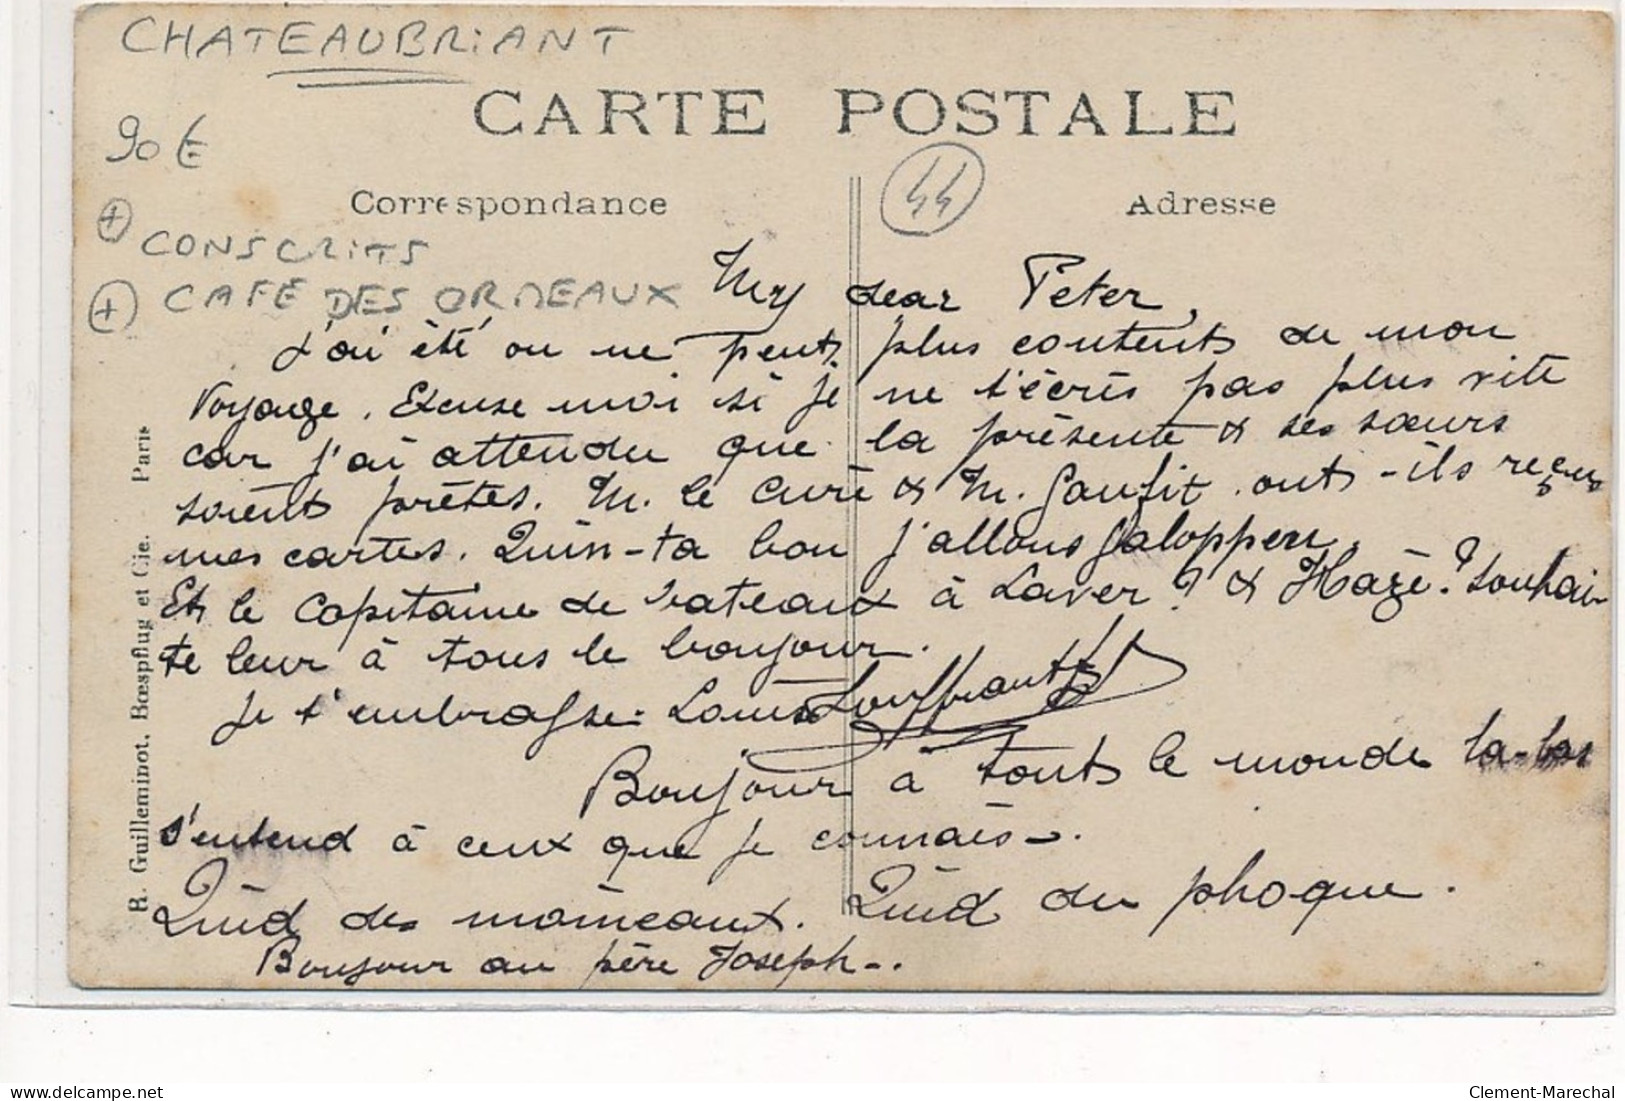 CHATEAUBRIANT
CARTE POSTALE
90€
44
Correspondance
Adresse
+ CONSCRITS
+ CAFÉ DES ORMEAUX
My dear Peter,
J'ai été on ne peut plus contents de mon
voyage. Excuse moi si je ne t'écris pas plus vite
car j'ai attendu que la présente & ses sœurs
soient prêtes. M. le curé & M. Gaufit ont-ils reçus
mes cartes. Quin-ta bon j'allons galopper.
Et le capitaine de bateaux à Laver? & Hazé? Souhai-
te leur à tous le bonjour.
Je t'embrasse. Louis
Bonjour à touts le monde la-bas
s'entend à ceux que je connais-.
Quid des moineaux. Quid du phoque.
Bonjour au père Joseph-.
R. Guilleminot, Bœspflug et Cie. Paris
delcampe.net
Clement-Marechal